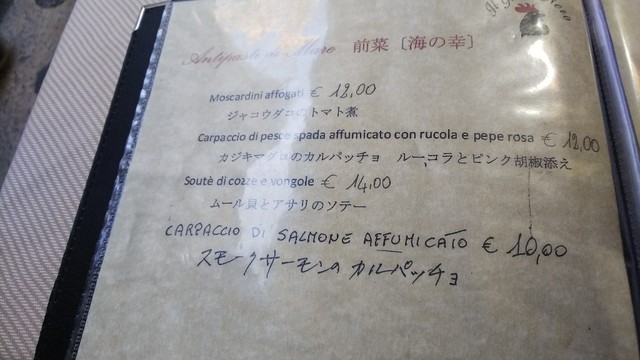 Il
Antipasti di Mare 前菜［海の幸］
Moscardini affogati € 12,00
ジャコウダコのトマト煮
Carpaccio di pesce spada affumicato con rucola e pepe rosa € 12,00
カジキマグロのカルパッチョ ルーコラとピンク胡椒添え
Soutè di cozze e vongole € 14,00
ムール貝とアサリのソテー
CARPACCIO DI SALMONE AFFUMICATO € 10,00
スモークサーモンのカルパッチョ